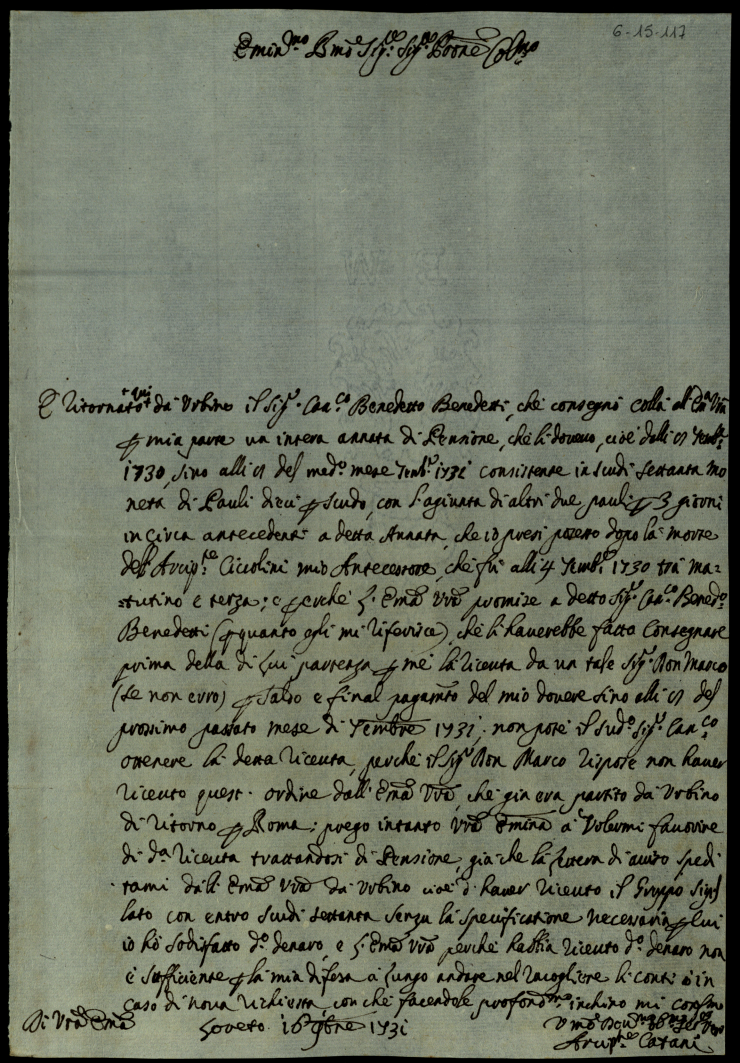 6-15-117
Emin.mo Rmo Sig.re Sig.re Prone Col.mo
È ritornato qui da Urbino il Sig.r Can.co Benedetto Benedetti, che consegnò colla all' Em.a Vra
p mia parte un intera annata di Pensione, che li dovevo, cioè dalli
1730, sino alli del med.o mese 7embre 1731 consistente in scudi settanta mo
neta di Pauli dieci p scudo, con l'agiunta di altri due pauli p 3 giorni
in circa antecedenti a detta Annata, che io presi possesso dopo la morte
dell' Arcip.te Ciccolini mio Antecessore, che fù alli 4 7embre 1730 trà ma-
tutino e terza; e perche l' Em.a Vra promise a detto Sig.r Can.co Bened.o
Benedetti (p quanto egli mi riferisce), che li haverebbe fatto consegnare
prima della di lui partenza p me la riceuta da un tale Sig.r Don Marco
(se non erro) p saldo e final pagam.to del mio dovere sino alli del
prossimo passato mese di 7embre 1731; non potè il sud.o Sig.r Can.co
ottenere la detta riceuta, perche il Sig.r Don Marco rispose non haver
riceuto quest' ordine dall' Em.a Vra, che gia era partito da Urbino
di ritorno p Roma; prego intanto Vra Emina a volermi favorire
di d.a riceuta trattandosi di Pensione, già che la lettera di aviso spedi
tami dall' Em.a Vra da Urbino cioè d' haver riceuto il Gruppo sigil
lato con entro scudi settanta senza la specificatione necessaria p cui
io hò sodisfatto d.o denaro, e l' Em.a Vra perche habbia riceuto d.o denaro non
è sufficiente p la mia difesa a lungo andare nel racogliere li conti ò in
caso di nova richiesta, con che facendole profond.ma inchino mi confermo
Di Vra Em.a
Soveto 16 9bre 1731
Arcip.te Catani